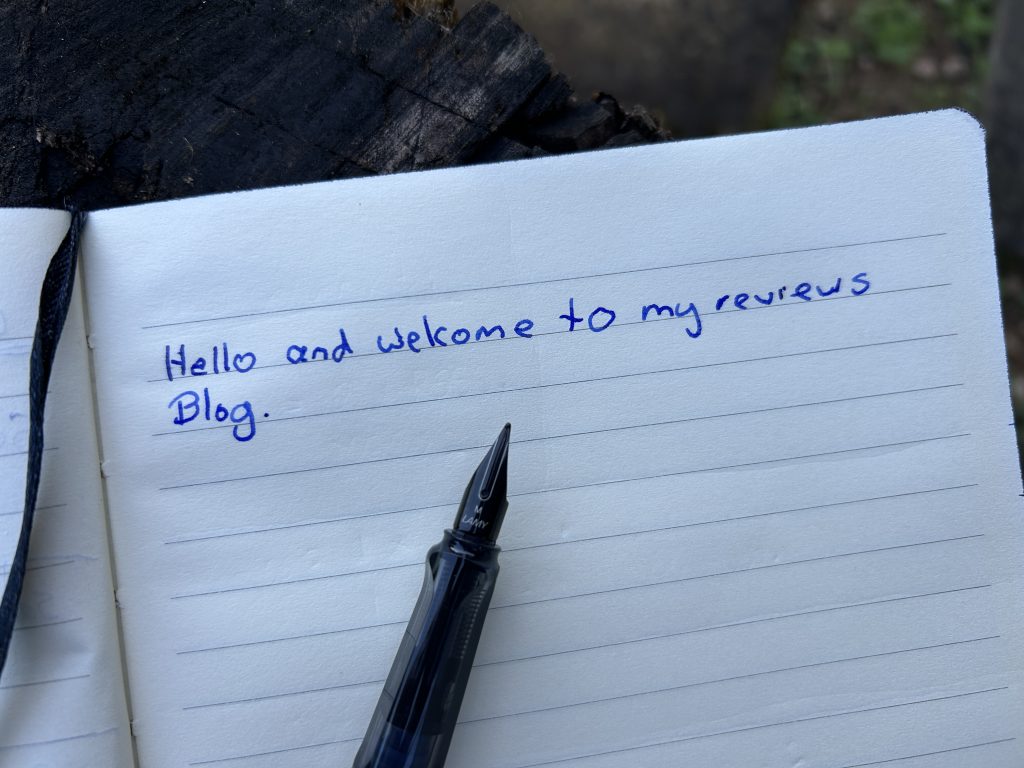 Hello and welcome to my reviews
Blog.
M
LAMY